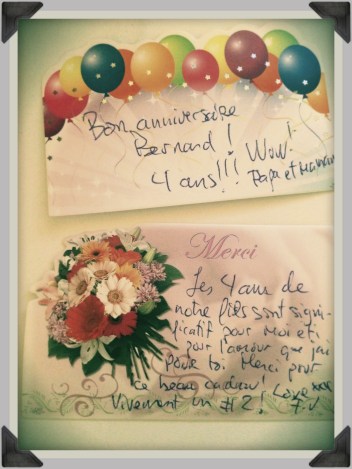 Bon anniversaire
Bernard !
Wow!
4 ans!!! Papa et Maman
Merci
Les 4 ans de
notre fils sont signi-
ficatif pour moi et
pour l'amour que j'ai
pour toi. Merci pour
ce beau cadeau!
Vivement un #2! Love xxx